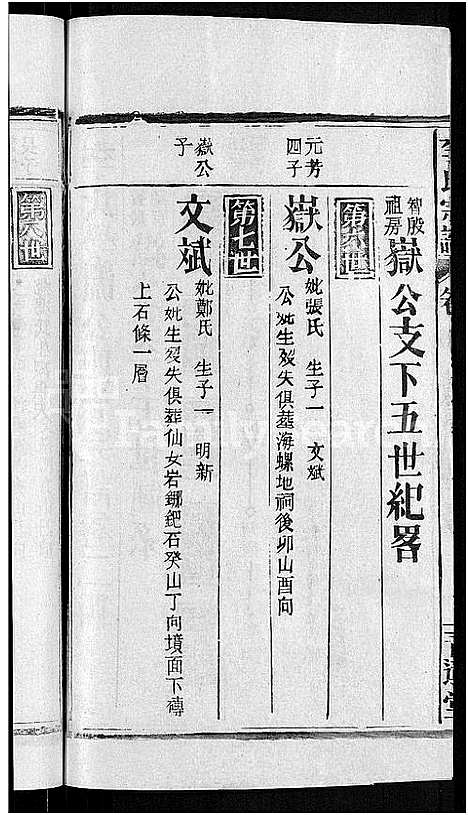 智殿祖房 嶽公支下五世紀畧
第六世
元芳四子
嶽公
妣張氏 生子一 文斌
公妣生歿失俱葬海螺地祠後卯山酉向
第七世
嶽公子
文斌
妣鄭氏 生子一 明新
公妣生歿失俱葬仙女岩鎯鈀石癸山丁向墳面下磚
上石條一層
第八世